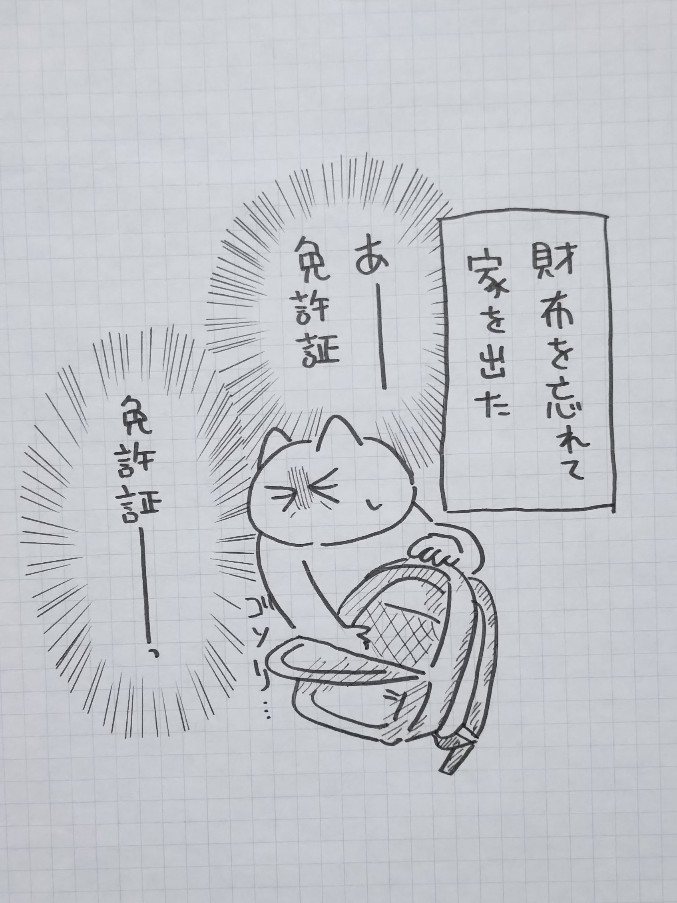 財布を忘れて
家を出た
あー
免許証
免許証ーっ
ゴソリ…